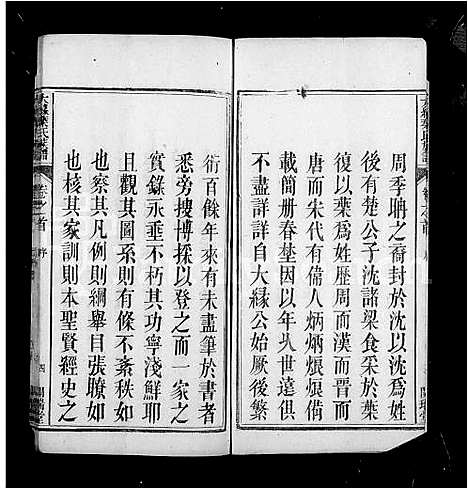 周季聃之裔封於沈以沈爲姓
後有楚公子沈諸梁食采於葉
復以葉爲姓歷周而漢而晉而
唐而宋代有偉人炳炳烺烺備
載簡册春埜因以年久世遠俱
不盡詳詳自大緣公始厥後繁
衍百餘年來有未盡筆於書者
悉旁搜博採以登之而一家之
實錄永垂不朽其功寧淺鮮耶
且觀其圖系則有條不紊秩如
也察其凡例則綱舉目張瞭如
也核其家訓則本聖賢經史之
大緣葉氏族譜
卷之首
序
四